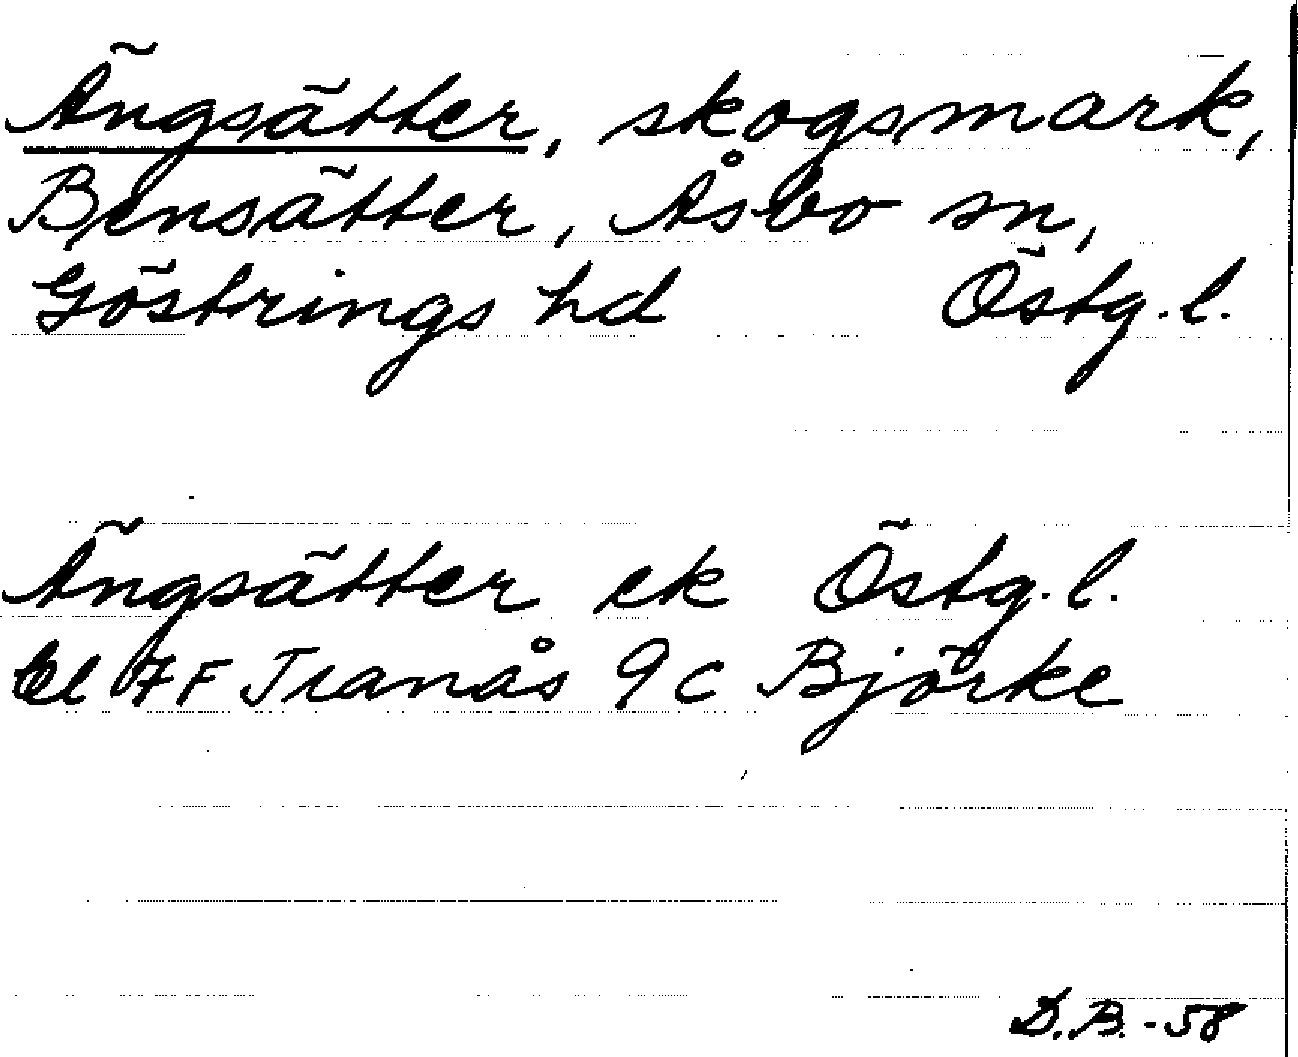 Ängsätter, skogsmark,
Bensätter, Åsbo sn,
Göstrings hd Östg. l.
Ängsätter ek Östg. l.
bl 7 F Tranås 9 c Björke
D.B. -58